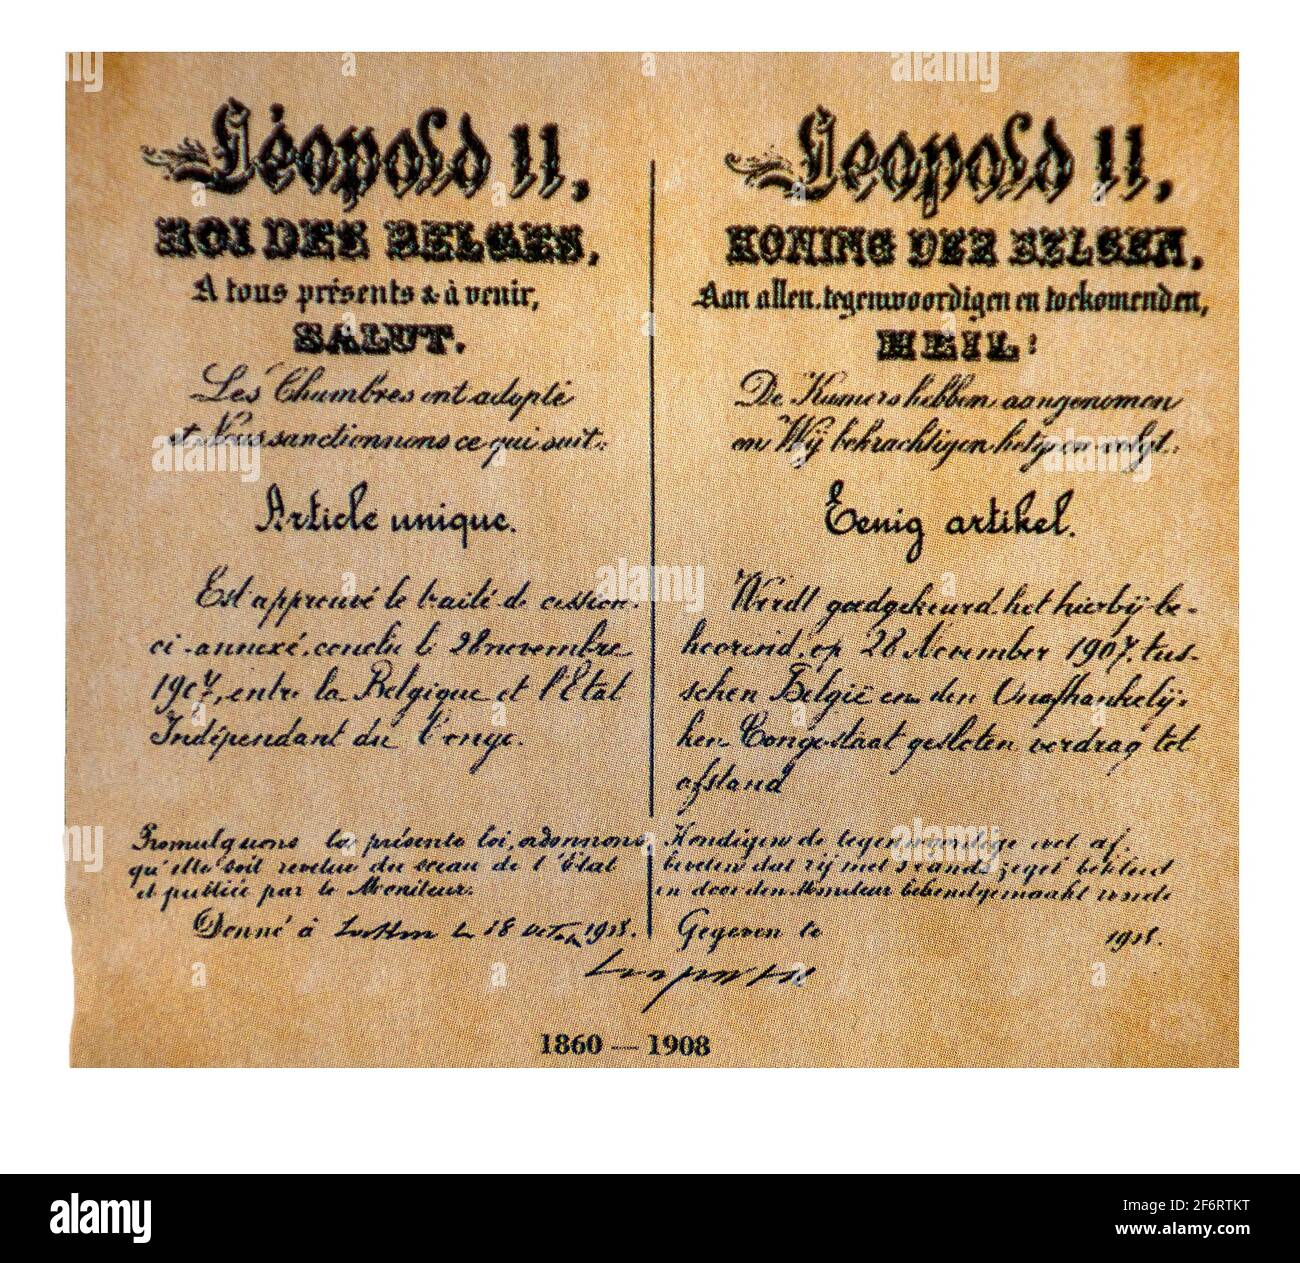 Léopold II,
ROI DES BELGES,
A tous présents & à venir,
SALUT.
Les Chambres ont adopté
et Nous sanctionnons ce qui suit:
Article unique.
Est approuvé le traité de cession
ci-annexé, conclu le 28 novembre
1907, entre la Belgique et l'État
Indépendant du Congo.
Promulguons la présente loi, ordonnons
qu'elle soit revêtue du sceau de l'État
et publiée par le Moniteur.
Donné à le 18 1908.
Leopold II,
KONING DER BELGEN,
Aan allen, tegenwoordigen en toekomenden,
HEIL:
De Kamers hebben aangenomen
en Wij bekrachtigen hetgeen volgt:
Eenig artikel.
Wordt goedgekeurd het hierbij be-
hoorend, op 28 November 1907, tus-
schen België en den Onafhankelij-
ken Congostaat gesloten verdrag tot
afstand
Kondigen de tegenwoordige wet af,
bevelen dat zij met 's Lands zegel bekleed
en door den Moniteur bekendgemaakt worde
Gegeven te 1908.
Leopold
1860 — 1908
alamy
Image ID: 2F6RTKT
www.alamy.com